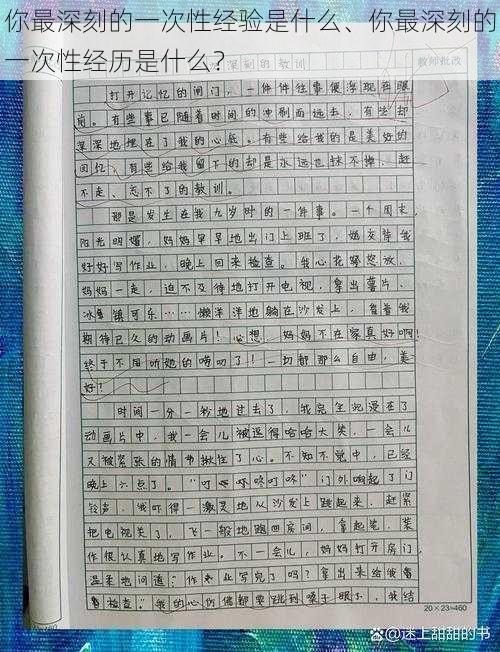 你最深刻的一次性经验是什么、你最深刻的
一次性经历是什么?
深刻的教训
教师批改
打开记忆的闸门，一件件往事便浮现在眼
前。有些事已随着时间的冲刷而远去，有些却
深深地埋在了我的心底。有些给我的是美好的
回忆，有些给我留下的却是永远也抹不掉、赶
不走、忘不了的教训。
那是发生在我九岁时的一件事。一个周末，
阳光明媚，妈妈早早地出门上班了，她交待我
好好写作业，晚上回来检查。我心花怒放，
妈妈一走，迫不及待地打开电视，拿出薯片、
冰镇可乐……懒洋洋地躺在沙发上，看着我
期待已久的动画片！心想，妈妈不在家真好啊！
终于不用听她的唠叨了！一切都那么自由，美
好？
时间一分一秒地过去了，我完全沉浸在了
动画片中，我一会儿被逗得哈哈大笑，一会儿
又被紧张的情节揪住了心。不知不觉中，已经
晚上六点了。“叮咚咚叮咚”门外响起了门
铃声，我吓得一激灵地从沙发上跳起来，赶紧
把电视关了，飞一般地跑回房间，拿起笔，装
作很认真地写作业。不一会儿，妈妈打开房门，
温柔地问道：“作业写完了吗？拿出来给我看
看检查。”我的心仿佛都要跳到嗓子眼了，我结
20×23=460
@迷上甜甜的书